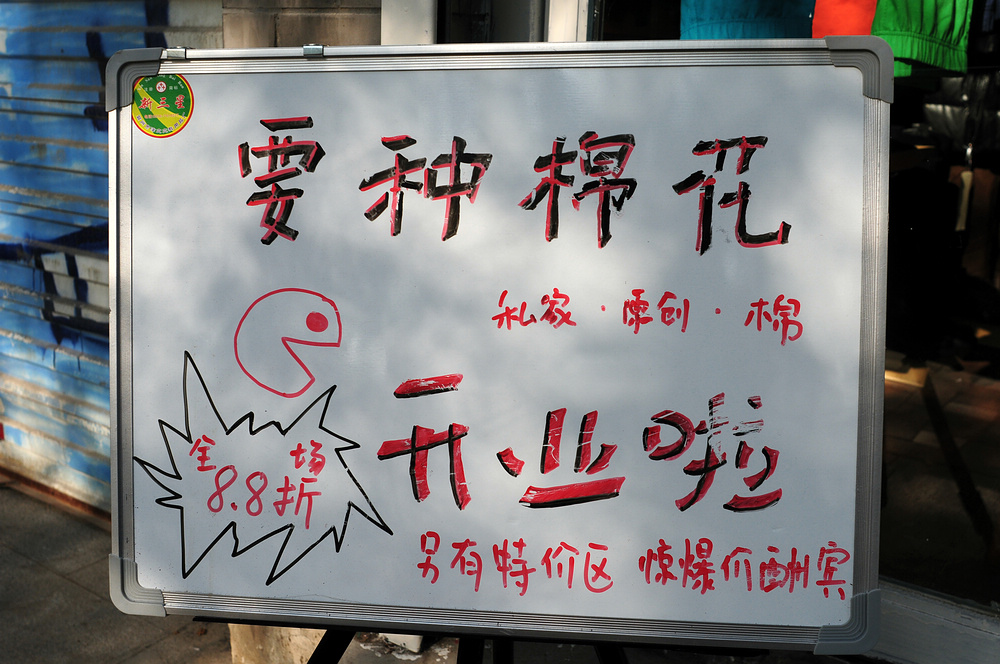 新三星
要种棉花
私家·原创·棉
开业啦
全场
8.8折
另有特价区 惊爆价酬宾